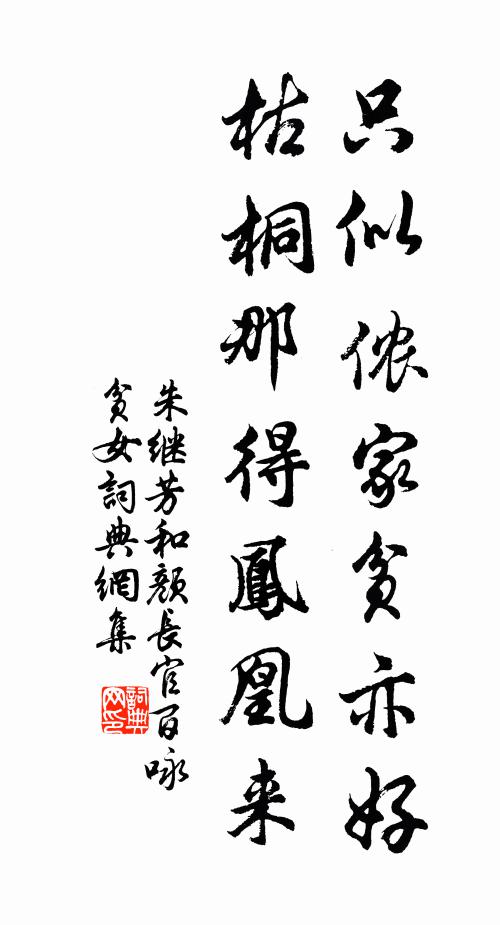 只似侬家贫亦好
枯桐那得鳳凰来
朱继芳和颜長官百咏
贫女詞典網集
詞典网印